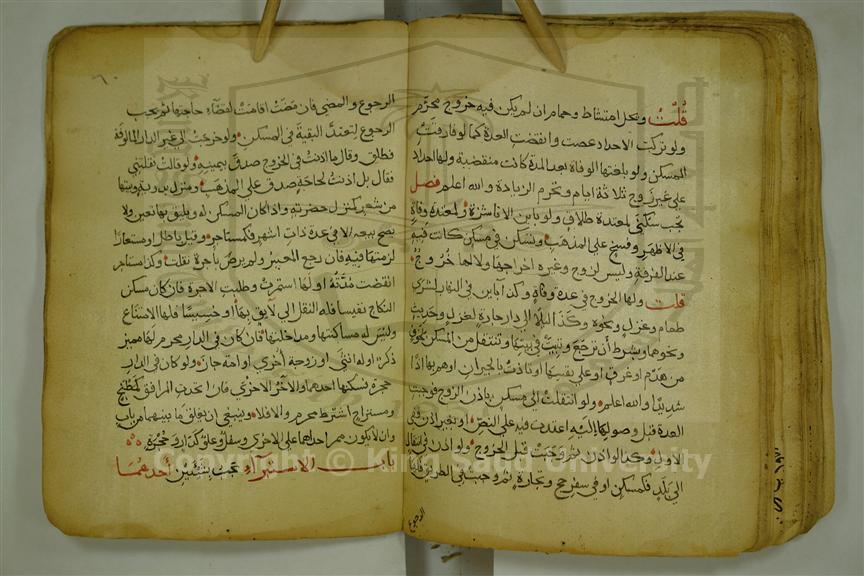 قُلْتُ ويحل امتشاط وحمام ان لم يكن فيه خروج محرّم
ولو تركت الاحداد عصت وانقضت العدة كما لو فارقت
المسكن ولو بلغتها الوفاة بعد المدة كانت منقضية ولها احداد
على غير زوج ثلاثة ايام وتحرم الزيادة والله اعلم فصل
تجب سكنى لمعتدة طلاق ولو باين الا ناشزة ولمعتدة وفاة
في الاظهر وفسخ على المذهب وتسكن في مسكن كانت فيه
عند الفرقة وليس لزوج وغيره اخراجها ولا لها خروج
قلت ولها الخروج في عدة وفاة وكذا باين في النهار لشرى
طعام وغزل ونحوه وكذا ليلا الى دار جارة لغزل وحديث
ونحوهما بشرط أن ترجع وتبيت في بيتها وتنتقل من المسكن لخوف
من هدم او غرق او على نفسها او تاذت بالجيران او هم بها اذا
شديدا والله اعلم ولو انتقلت الى مسكن باذن الزوج فوجبت
العدة قبل وصولها اليه اعتدت فيه على النص او بغير اذن ففي
الاول وكذا لو اذن ثم وجبت قبل الخروج ولو اذن في انتقال
الى بلد فكمسكن او في سفر حج وتجارة ثم وجبت في الطريق فلها
الرجوع
الرجوع والمضي فان مضت اقامت لقضاء حاجتها ثم يجب
الرجوع لتعتد البقية في المسكن ولو خرجت الى غير الدار المالوفة
فطلق وقال ما اذنت في الخروج صدق بيمينه ولو قالت نقلتني
فقال بل اذنت لحاجة صدق على المذهب ومنزل بدوية وبيتها
من شعر كمنزل حضرية واذا كان المسكن له ويليق بها تعين ولا
يصح بيعه الا في عدة ذات اشهر فكمستاجر وقيل باطل او مستعارا
لزمتها فيه فان رجع المعير ولم يرض باجرة نقلت وكذا مستاجر
انقضت مدته او لها استمرت وطلبت الاجرة فان كان مسكن
النكاح نفيسا فله النقل الى لايق بها او خسيسا فلها الامتناع
وليس له مساكنتها ومداخلتها فان كان في الدار محرم لها مميز
ذكر او له انثى او زوجة اخرى او امة جاز ولو كان في الدار
حجرة فسكنها احدهما والآخر الاخرى فان اتحدت المرافق كمطبخ
ومستراح اشترط محرم والا فلا وينبغي ان يغلق ما بينهما من باب
وان لا يكون ممر احداهما على الاخرى وسفل وعلو كدار وحجرة
باب الاستبراء يجب بسببين أحدهما
Copyright © King Saud University